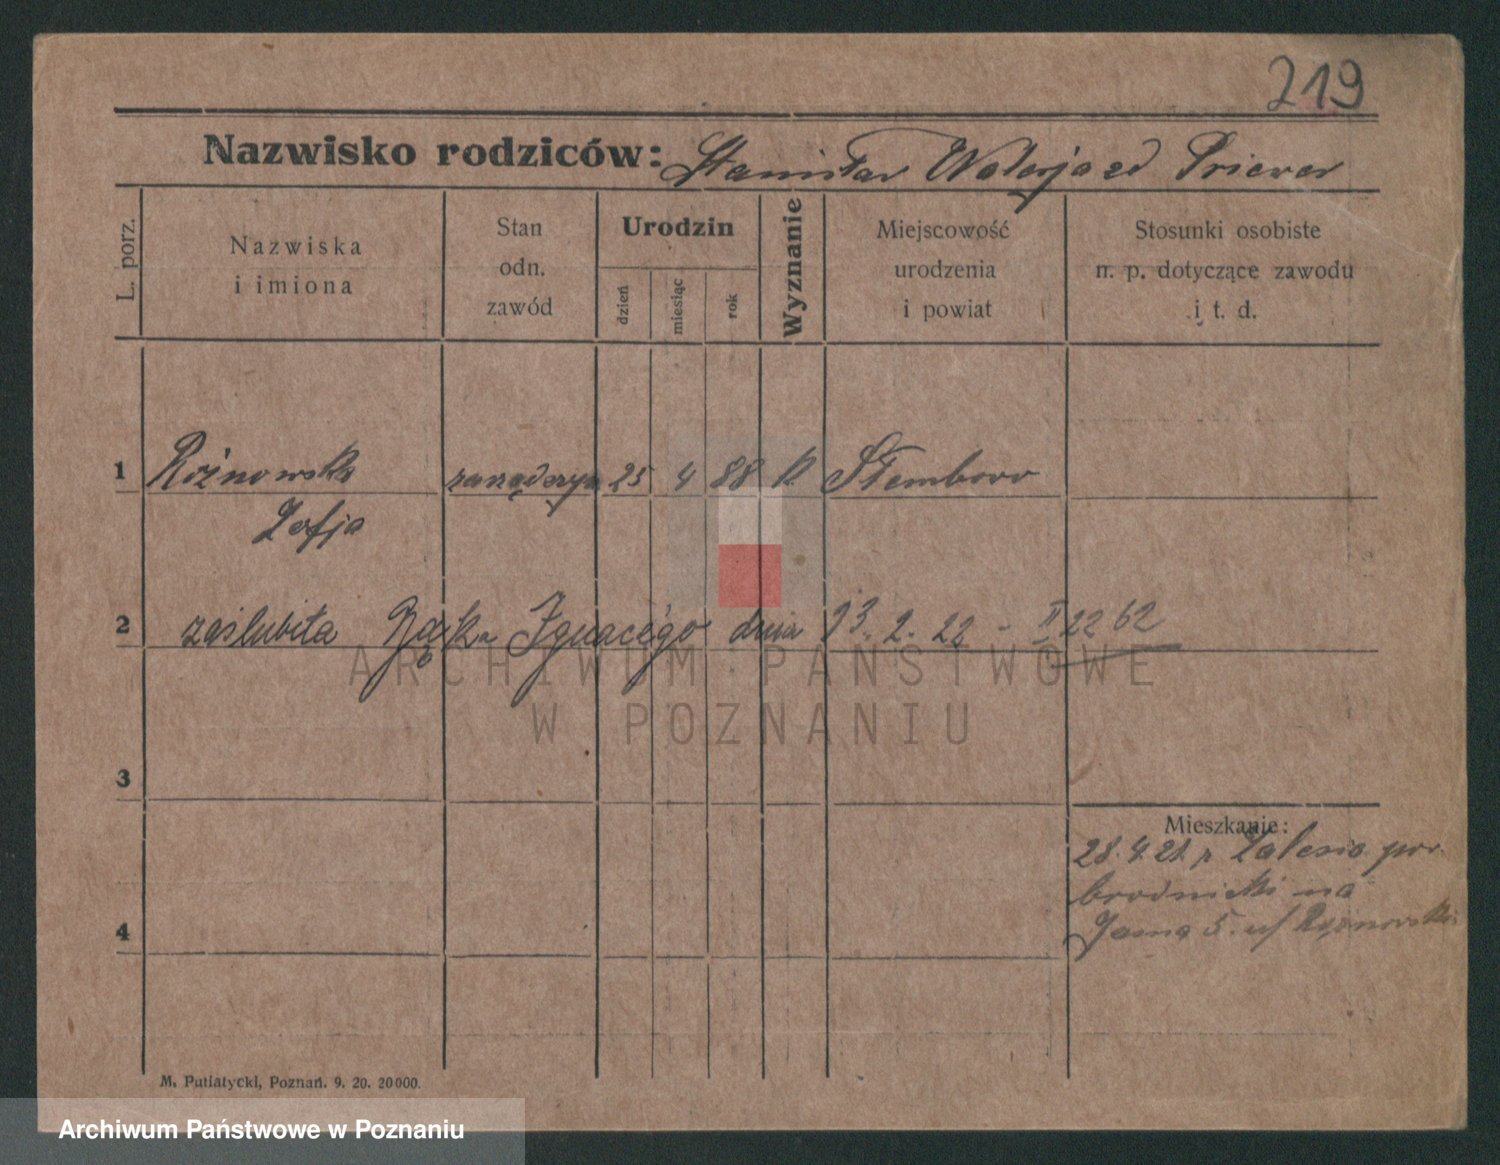 219
Nazwisko rodziców: Stanisław Walerja zd Priewer
L. porz.
Nazwiska
i imiona
Stan
odn.
zawód
Urodzin
dzień
miesiąc
rok
Wyznanie
Miejscowość
urodzenia
i powiat
Stosunki osobiste
n. p. dotyczące zawodu
i t. d.
1 Rożnowska 25 4 88 k Stemboro
Zofja
2 zaślubiła Ignacego dnia 13. 2. 22 - II 22 62
3
Mieszkanie:
28. 4. 21. z Zalesia pow.
brodnicki na
4 Jasna 5. u/ Rożnowski
M. Putiatycki, Poznań. 9. 20. 20000.
ARCHIWUM PAŃSTWOWE
W POZNANIU
Archiwum Państwowe w Poznaniu